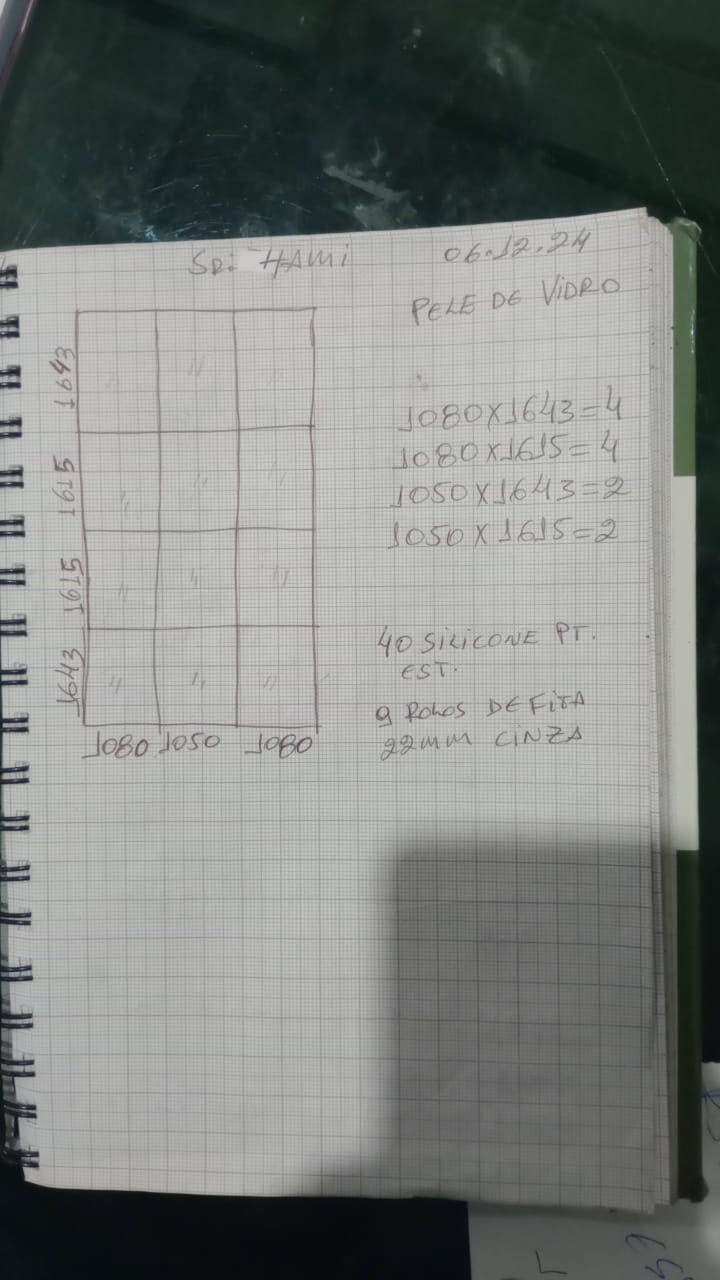 SR: HAMI
06.12.24
PELE DE VIDRO
1643
1615
1615
1643
1080 1050 1080
1080X1643=4
1080X1615=4
1050X1643=2
1050X1615=2
40 SILICONE PT.
EST.
9 ROLOS DE FITA
22MM CINZA